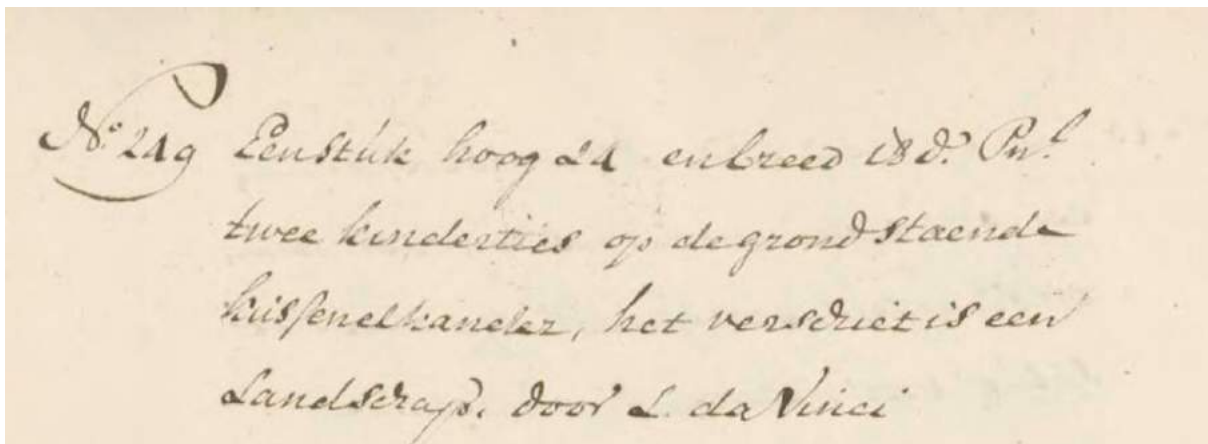 No. 249 Een stuk hoog 24 en breed 18 d. Pnl.
twee kinderties op de grond staende
kussen elkander, het verschiet is een
Landschap. door L. da Vinci